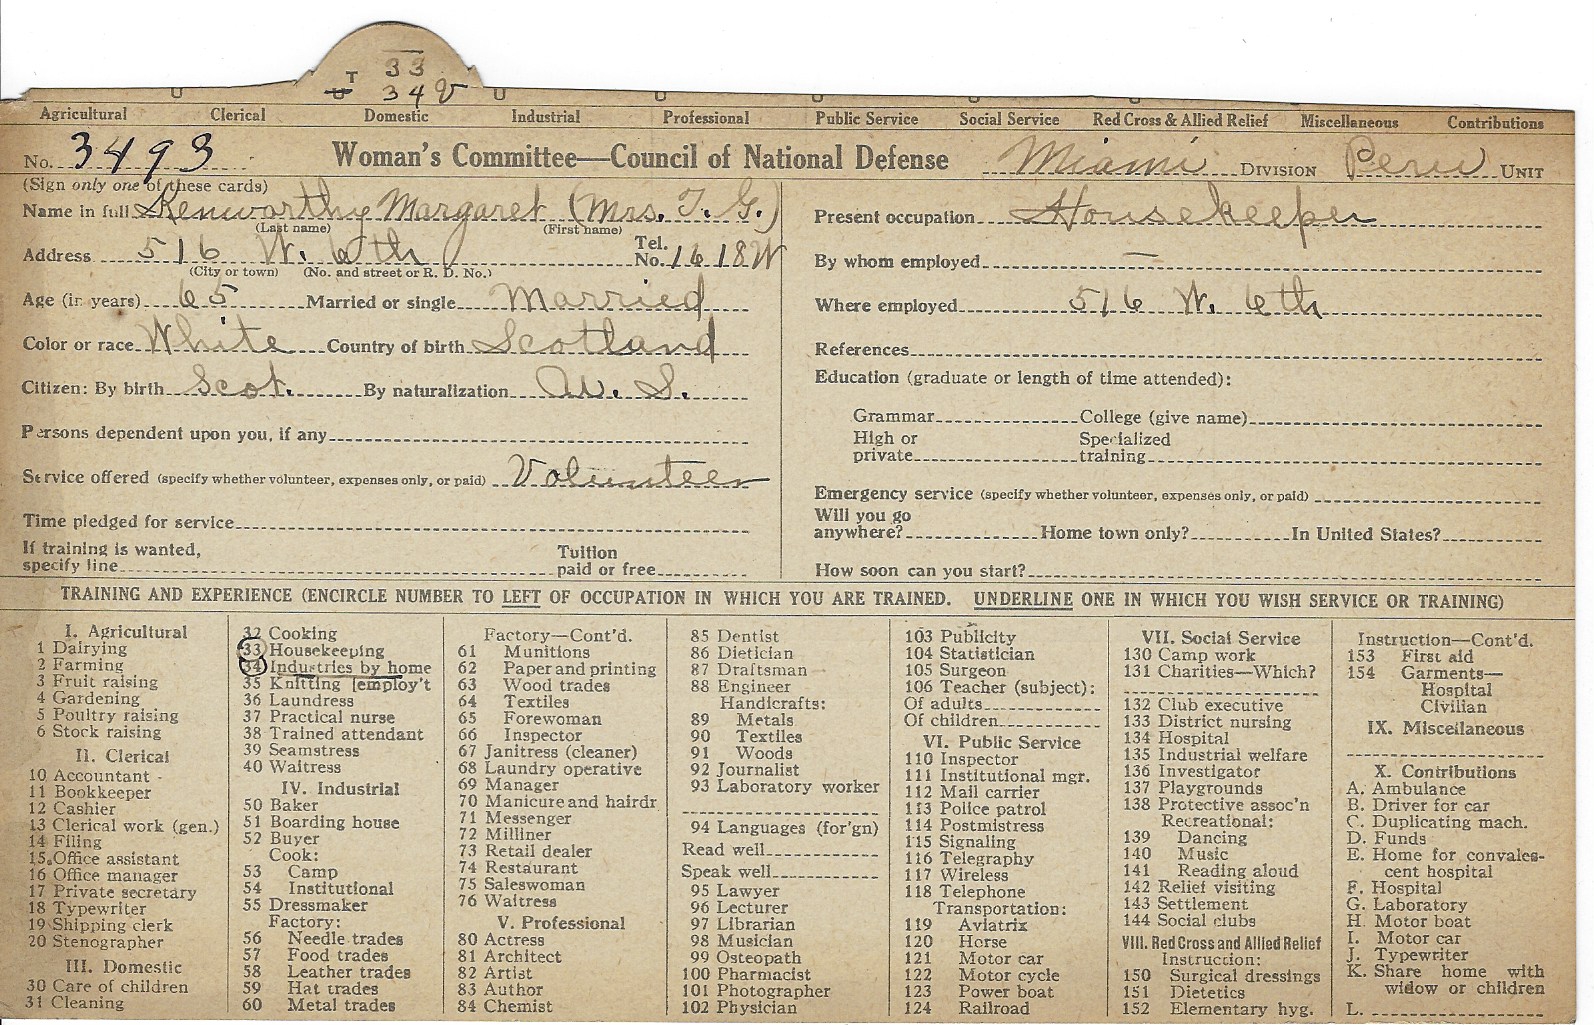 33
T 34 V
U U U U U U U U
Agricultural Clerical Domestic Industrial Professional Public Service Social Service Red Cross & Allied Relief Miscellaneous Contributions
No. 3493 Woman's Committee—Council of National Defense Miami DIVISION Peru UNIT
(Sign only one of these cards)
Name in full Kenworthy Margaret (Mrs. T. G.)
(Last name) (First name)
Address 516 W. 6th Tel. No. 1618W
(City or town) (No. and street or R. D. No.)
Age (in years) 65 Married or single Married
Color or race White Country of birth Scotland
Citizen: By birth Scot. By naturalization U. S.
Persons dependent upon you, if any
Service offered (specify whether volunteer, expenses only, or paid) Volunteer
Time pledged for service
If training is wanted,
specify line Tuition paid or free
Present occupation Housekeeper
By whom employed —
Where employed 516 W. 6th
References
Education (graduate or length of time attended):
Grammar College (give name)
High or private Specialized training
Emergency service (specify whether volunteer, expenses only, or paid)
Will you go
anywhere? Home town only? In United States?
How soon can you start?
TRAINING AND EXPERIENCE (ENCIRCLE NUMBER TO LEFT OF OCCUPATION IN WHICH YOU ARE TRAINED. UNDERLINE ONE IN WHICH YOU WISH SERVICE OR TRAINING)
I. Agricultural
1 Dairying
2 Farming
3 Fruit raising
4 Gardening
5 Poultry raising
6 Stock raising
II. Clerical
10 Accountant
11 Bookkeeper
12 Cashier
13 Clerical work (gen.)
14 Filing
15 Office assistant
16 Office manager
17 Private secretary
18 Typewriter
19 Shipping clerk
20 Stenographer
III. Domestic
30 Care of children
31 Cleaning
32 Cooking
33 Housekeeping
34 Industries by home
35 Knitting [employ't
36 Laundress
37 Practical nurse
38 Trained attendant
39 Seamstress
40 Waitress
IV. Industrial
50 Baker
51 Boarding house
52 Buyer
Cook:
53 Camp
54 Institutional
55 Dressmaker
Factory:
56 Needle trades
57 Food trades
58 Leather trades
59 Hat trades
60 Metal trades
Factory—Cont'd.
61 Munitions
62 Paper and printing
63 Wood trades
64 Textiles
65 Forewoman
66 Inspector
67 Janitress (cleaner)
68 Laundry operative
69 Manager
70 Manicure and hairdr
71 Messenger
72 Milliner
73 Retail dealer
74 Restaurant
75 Saleswoman
76 Waitress
V. Professional
80 Actress
81 Architect
82 Artist
83 Author
84 Chemist
85 Dentist
86 Dietician
87 Draftsman
88 Engineer
Handicrafts:
89 Metals
90 Textiles
91 Woods
92 Journalist
93 Laboratory worker
94 Languages (for'gn)
Read well
Speak well
95 Lawyer
96 Lecturer
97 Librarian
98 Musician
99 Osteopath
100 Pharmacist
101 Photographer
102 Physician
103 Publicity
104 Statistician
105 Surgeon
106 Teacher (subject):
Of adults
Of children
VI. Public Service
110 Inspector
111 Institutional mgr.
112 Mail carrier
113 Police patrol
114 Postmistress
115 Signaling
116 Telegraphy
117 Wireless
118 Telephone
Transportation:
119 Aviatrix
120 Horse
121 Motor car
122 Motor cycle
123 Power boat
124 Railroad
VII. Social Service
130 Camp work
131 Charities—Which?
132 Club executive
133 District nursing
134 Hospital
135 Industrial welfare
136 Investigator
137 Playgrounds
138 Protective assoc'n
Recreational:
139 Dancing
140 Music
141 Reading aloud
142 Relief visiting
143 Settlement
144 Social clubs
VIII. Red Cross and Allied Relief
Instruction:
150 Surgical dressings
151 Dietetics
152 Elementary hyg.
Instruction—Cont'd.
153 First aid
154 Garments—
Hospital
Civilian
IX. Miscellaneous
X. Contributions
A. Ambulance
B. Driver for car
C. Duplicating mach.
D. Funds
E. Home for convales-
cent hospital
F. Hospital
G. Laboratory
H. Motor boat
I. Motor car
J. Typewriter
K. Share home with
widow or children
L.